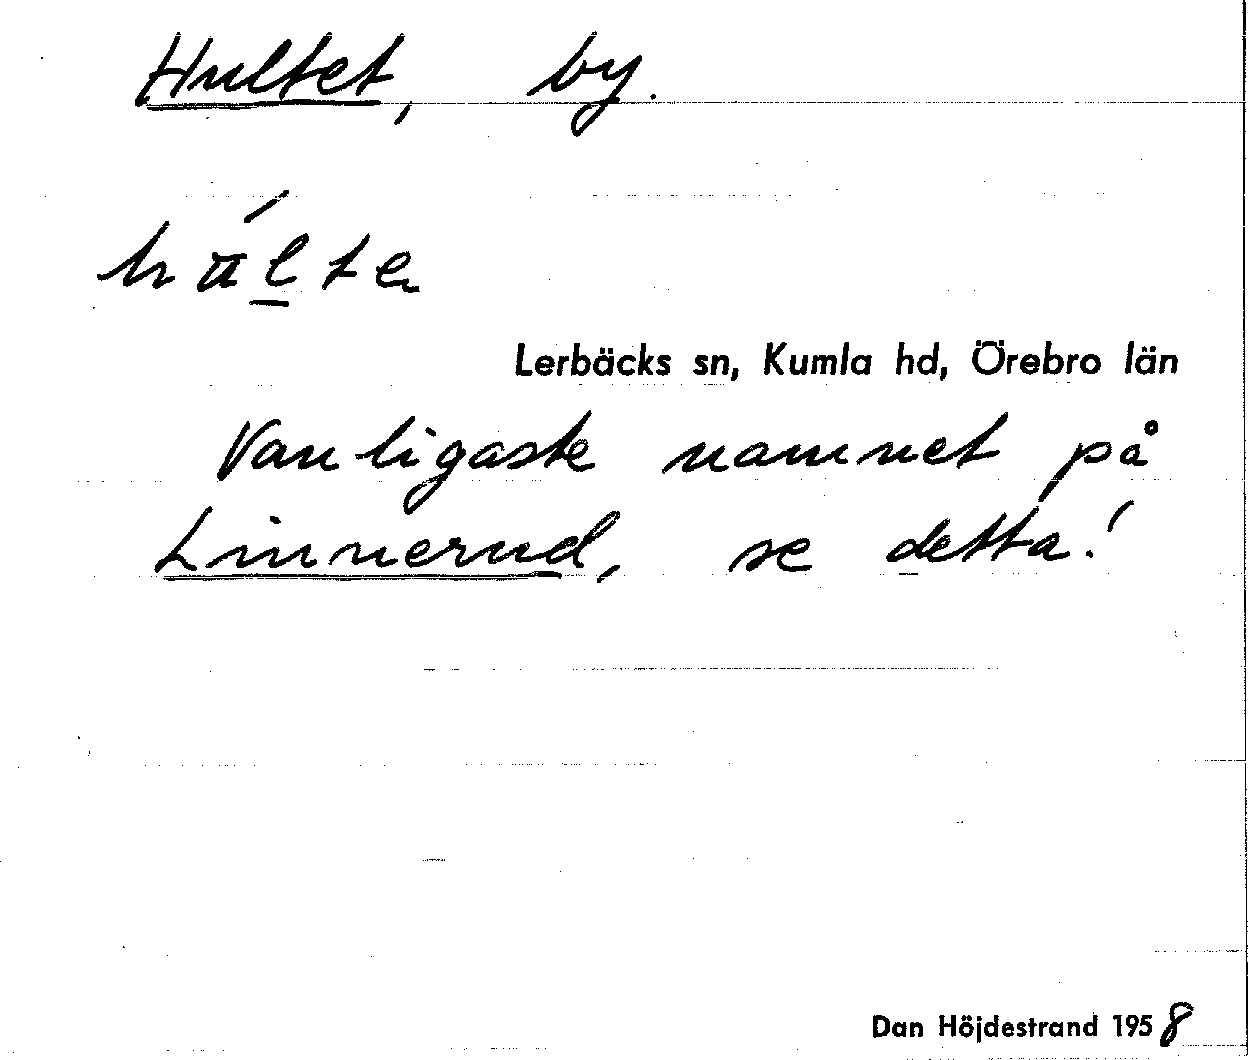 Hultet, by.
Lerbäcks sn, Kumla hd, Örebro län
Vanligaste namnet på
Linnerud, se detta!
Dan Höjdestrand 1958